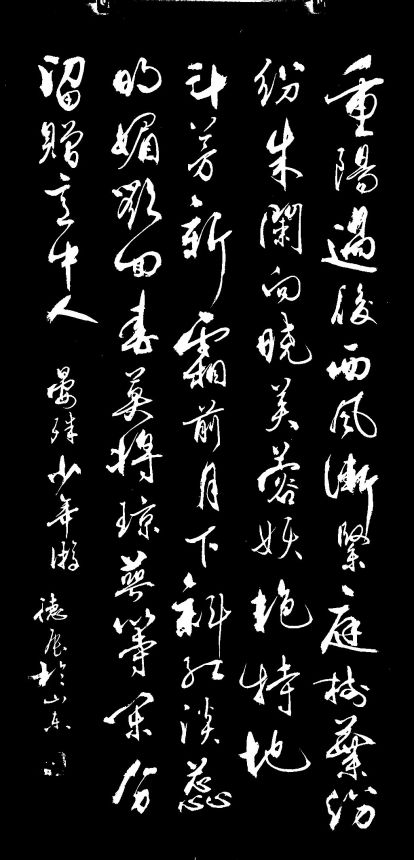 重陽過後西風漸緊庭樹葉紛
紛朱闌向曉芙蓉妖艳特地
斗芳新霜前月下斜红淡蕊
明媚欲回春莫将琼萼等闲分
留贈意中人
晏殊少年游
德展於山东